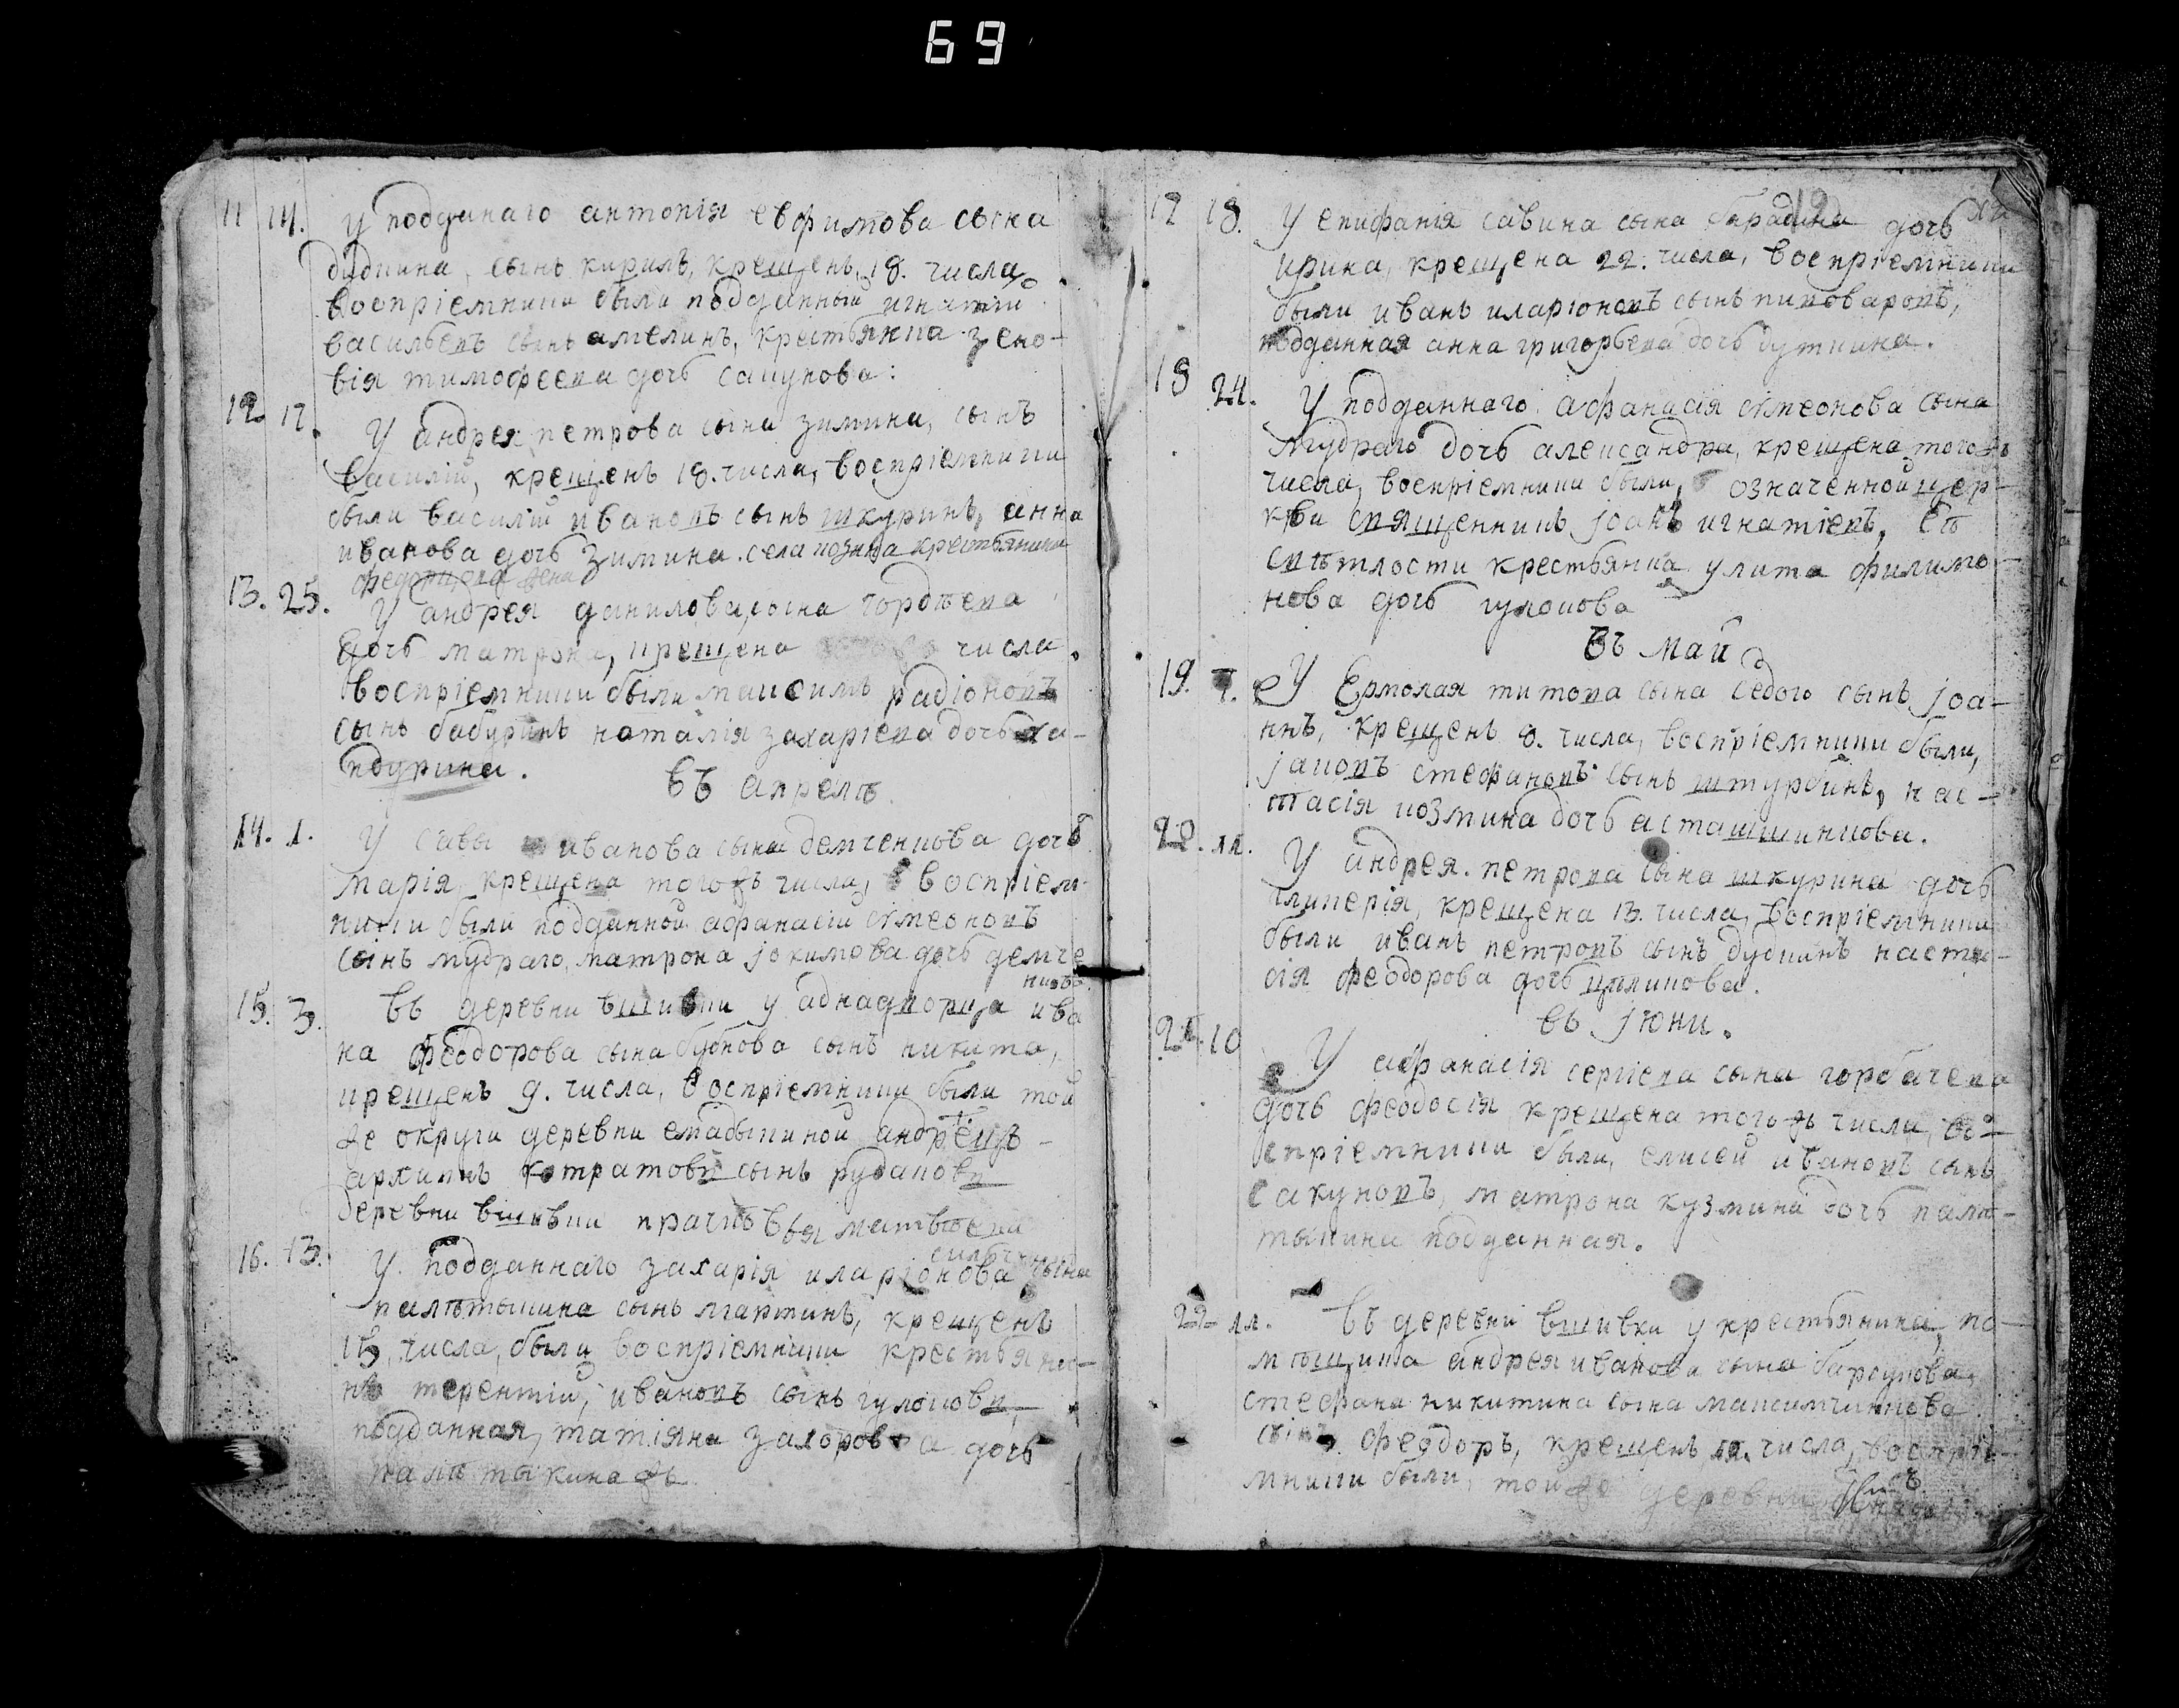 69
11 14. У подданаго антонія евфимова сына
дудкина, сынъ кирилъ, крещенъ, 18. числа,
воспріемники были подданный игнатій
васильевъ сынъ амелинъ, крестьянка зено-
вія тимофеева дочь сакунова:
12 17. У андрея петрова сына зимина, сынъ
василій, крещенъ 18. числа, воспріемники
были василій ивановъ сынъ шкуринъ, анна
иванова дочь зимина. села крестьянина
жена
13. 25. У андрея данилова сына гордѣева
дочь матрона, крещена числа.
воспріемники были максимъ радіоновъ
сынъ бабуринъ наталія захаріева дочь
въ апрелѣ
14. 1. У савы иванова сына демченкова дочь
марія, крещена тогожъ числа, воспріем-
ники были подданной афанасій симеоновъ
сынъ мудраго, матрона јокимова дочь демче
нкова.
15. 3. Въ деревни вшивки у аднадворца ива
на феодорова сына бубнова сынъ никита,
крещенъ 9. числа, воспріемники были той
же округи деревни андреевъ
сынъ рудаковъ
деревни вшивки матвѣева
16. 13. У подданнаго захарія иларіонова сына
палѣтыкина сынъ мартинъ, крещенъ
15. числа, были воспріемники крестьяни-
нъ терентій, ивановъ сынъ гулоковъ,
подданная, татіяна захорова дочь
палѣтыкина жъ
12 12
17 18. У епифанія савина сына дочь
ирина, крещена 22. числа, воспріемники
были иванъ иларіоновъ сынъ пивоваровъ,
подданная анна григорьева дочь дудкина.
18 24. У подданнаго афанасія симеонова сына
мудраго дочь александра, крещена тогожъ
числа, воспріемники были, означенной цер-
кви священникъ јоанъ игнатіевъ, Ея
свѣтлости крестьянка улита филимо-
нова дочь гулокова
въ маи
19. 7. У Ермолая титова сына седого сынъ јоа-
ннъ, крещенъ 8. числа, воспріемники были,
јаковъ стефановъ сынъ штурбинъ, нас-
тасія козмина дочь асташшинкова.
20. 11. У андрея петрова сына шкурина дочь
гликерія, крещена 13. числа, воспріемники
были иванъ петровъ сынъ дудкинъ наста-
сія феодорова дочь цыликова.
въ јюни.
21. 10 У афанасія сергіева сына горбачева
дочь феодосія крещена того жъ числа, во-
спріемники были, елисей ивановъ сынъ
сакуновъ, матрона кузмина дочь палѣ-
тыкина подданная.
22 11. Въ деревни вшивки у крестьянина, по-
мѣщика андрея иванова сына барсукова,
стефана никитина сына максимчинкова
сынъ феодоръ, крещенъ 12. числа, воспріе-
мники были, тойже деревни